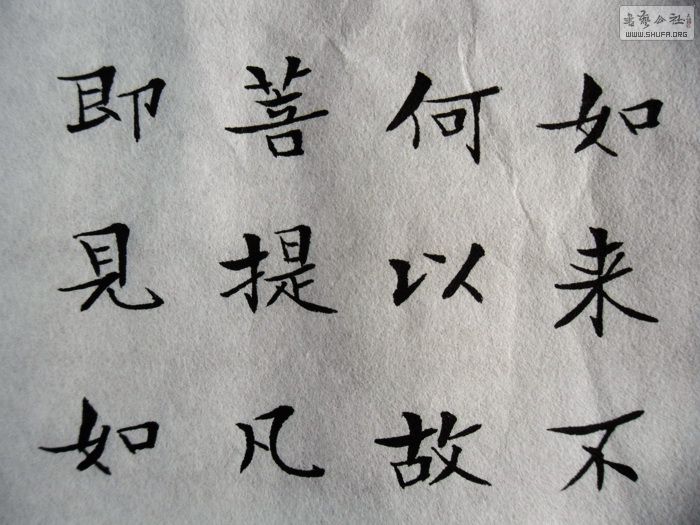 如来不
何以故
菩提凡
即見如
書法公社
WWW.SHUFA.ORG